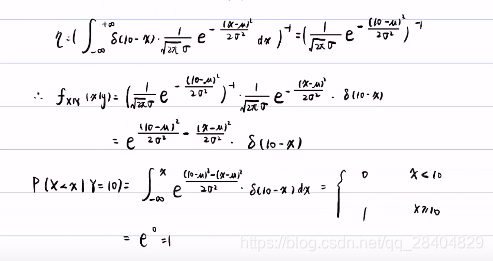 η = ( ∫_{-∞}^{+∞} δ(10-x) · 1/(√2π σ) e^{-(x-μ)²/2σ²} dx )^{-1} = ( 1/(√2π σ) e^{-(10-μ)²/2σ²} )^{-1}
∴ f_{X|Y}(x|y) = ( 1/(√2π σ) e^{-(10-μ)²/2σ²} )^{-1} · 1/(√2π σ) e^{-(x-μ)²/2σ²} · δ(10-x)
= e^{(10-μ)²/2σ² - (x-μ)²/2σ²} · δ(10-x)
P(X<x|Y=10) = ∫_{-∞}^{x} e^{((10-μ)²-(x-μ)²)/2σ²} · δ(10-x) dx = { 0 x<10
1 x≥10
= e^0 = 1
https://blog.csdn.net/qq_28404829